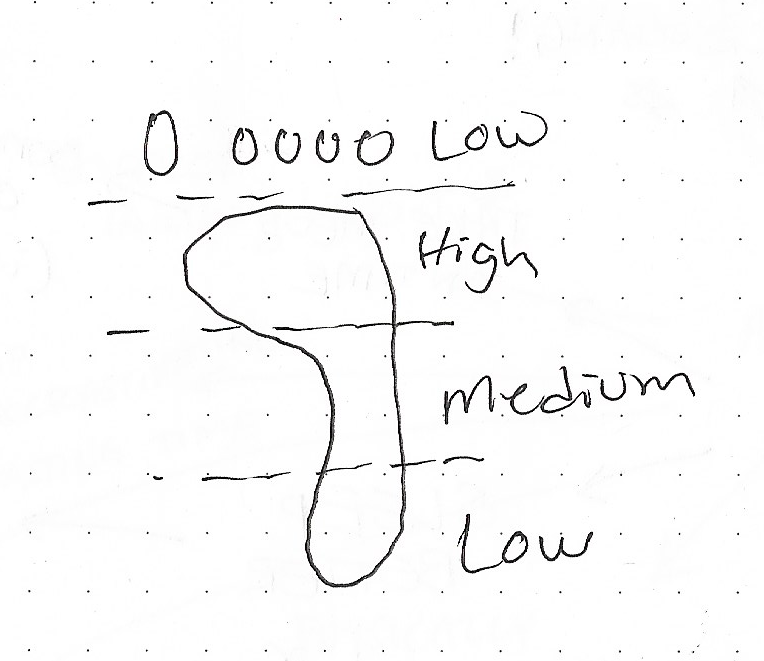 0 0000 Low
High
Medium
Low